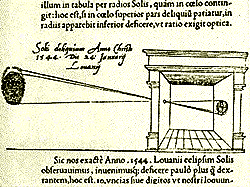 illum in tabula per radios Solis, quàm in cœlo contin-
git: hoc est, si in cœlo superior pars deliquiũ patiatur, in
radiis apparebit inferior deficere, vt ratio exigit optica.
Solis deliquium Anno Christi
1544. Die 24. Januarij
Louanij
Sic nos exactè Anno .1544. Louanii eclipsim Solis
obseruauimus, inuenimusq; deficere paulò plus q̃ dex-